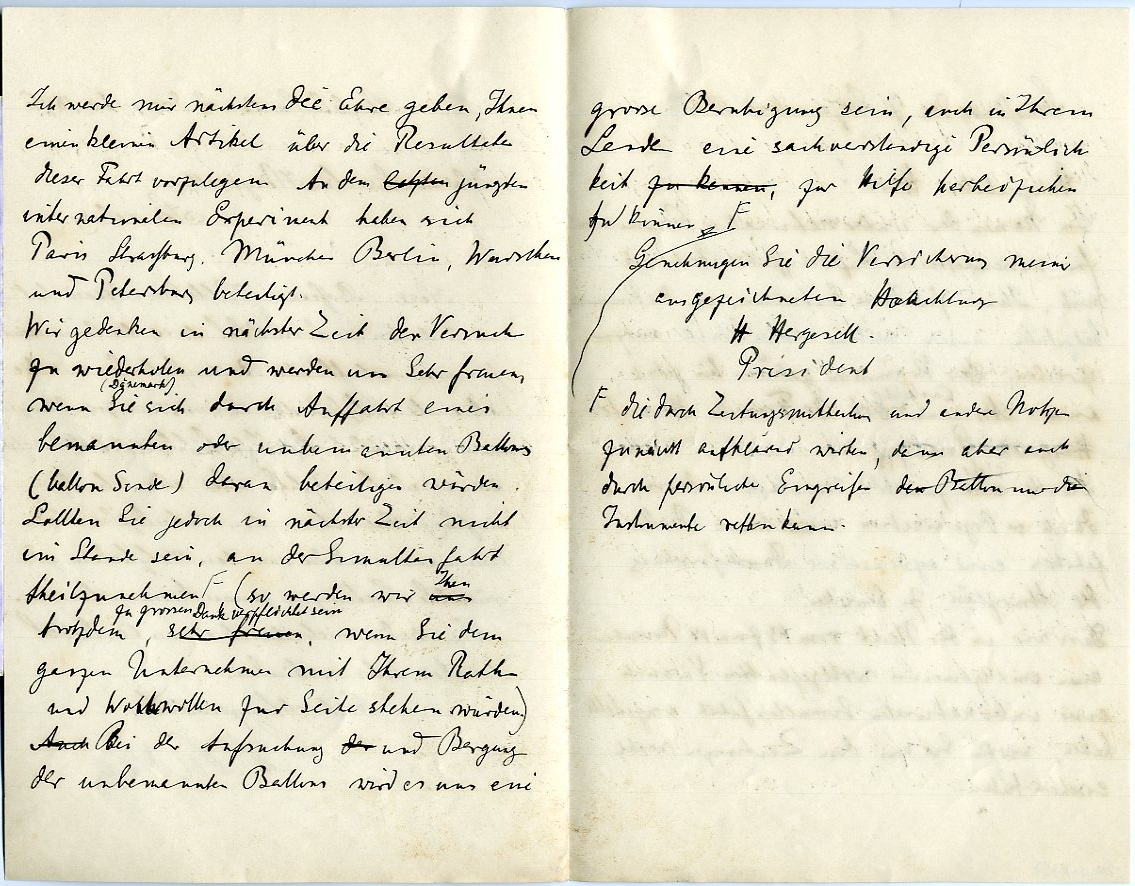 Ich werde mir nächstens die Ehre geben, Ihnen
einen kleinen Artikel über die Resultate
dieser Fahrt vorzulegen. An dem letzten jüngsten
internationalen Experiment haben sich
Paris Strassburg, München Berlin, Warschau
und Petersburg beteiligt.
Wir gedenken in nächster Zeit den Versuch
zu wiederholen und werden uns sehr freuen,
(Dänemark)
wenn Sie sich durch Auffahrt eines
bemannten oder unbemannten Ballons
(ballon Sonde) daran beteiligen würden.
Sollten Sie jedoch in nächster Zeit nicht
im Stande sein, an der Simultanfahrt
Ihnen
theilzunehmen F (so werden wir uns
zu grossem Dank verpflichtet sein
trotzdem, sehr freuen, wenn Sie dem
ganzen Unternehmen mit Ihrem Rathe
und Wohlwollen zur Seite stehen würden)
Auch Bei der Aufsuchung der und Bergung
der unbemannten Ballons wird es uns eine
grosse Beruhigung sein, auch in Ihrem
Lande eine sachverständige Persönlich
keit zu kennen, zur Hilfe herbeiziehen
zu können F
Genehmigen Sie die Versicherung meiner
ausgezeichneten Hochachtung
H Hergesell.
Präsident
F die durch Zeitungsmittheilung und andre Notizen
zunächst aufklärend wirken, dann aber auch
durch persönliche Eingreifen den Ballon und die
Instrumente retten kann.